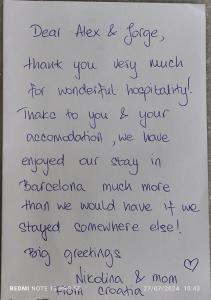 Dear Alex & Jorge,
thank you very much
for wonderful hospitality!
Thanks to you & your
accomodation, we have
enjoyed our stay in
Barcelona much more
than we would have if we
stayed somewhere else!
Big greetings
Nikolina & mom
from Croatia
REDMI NOTE 27/07/2024 10:43